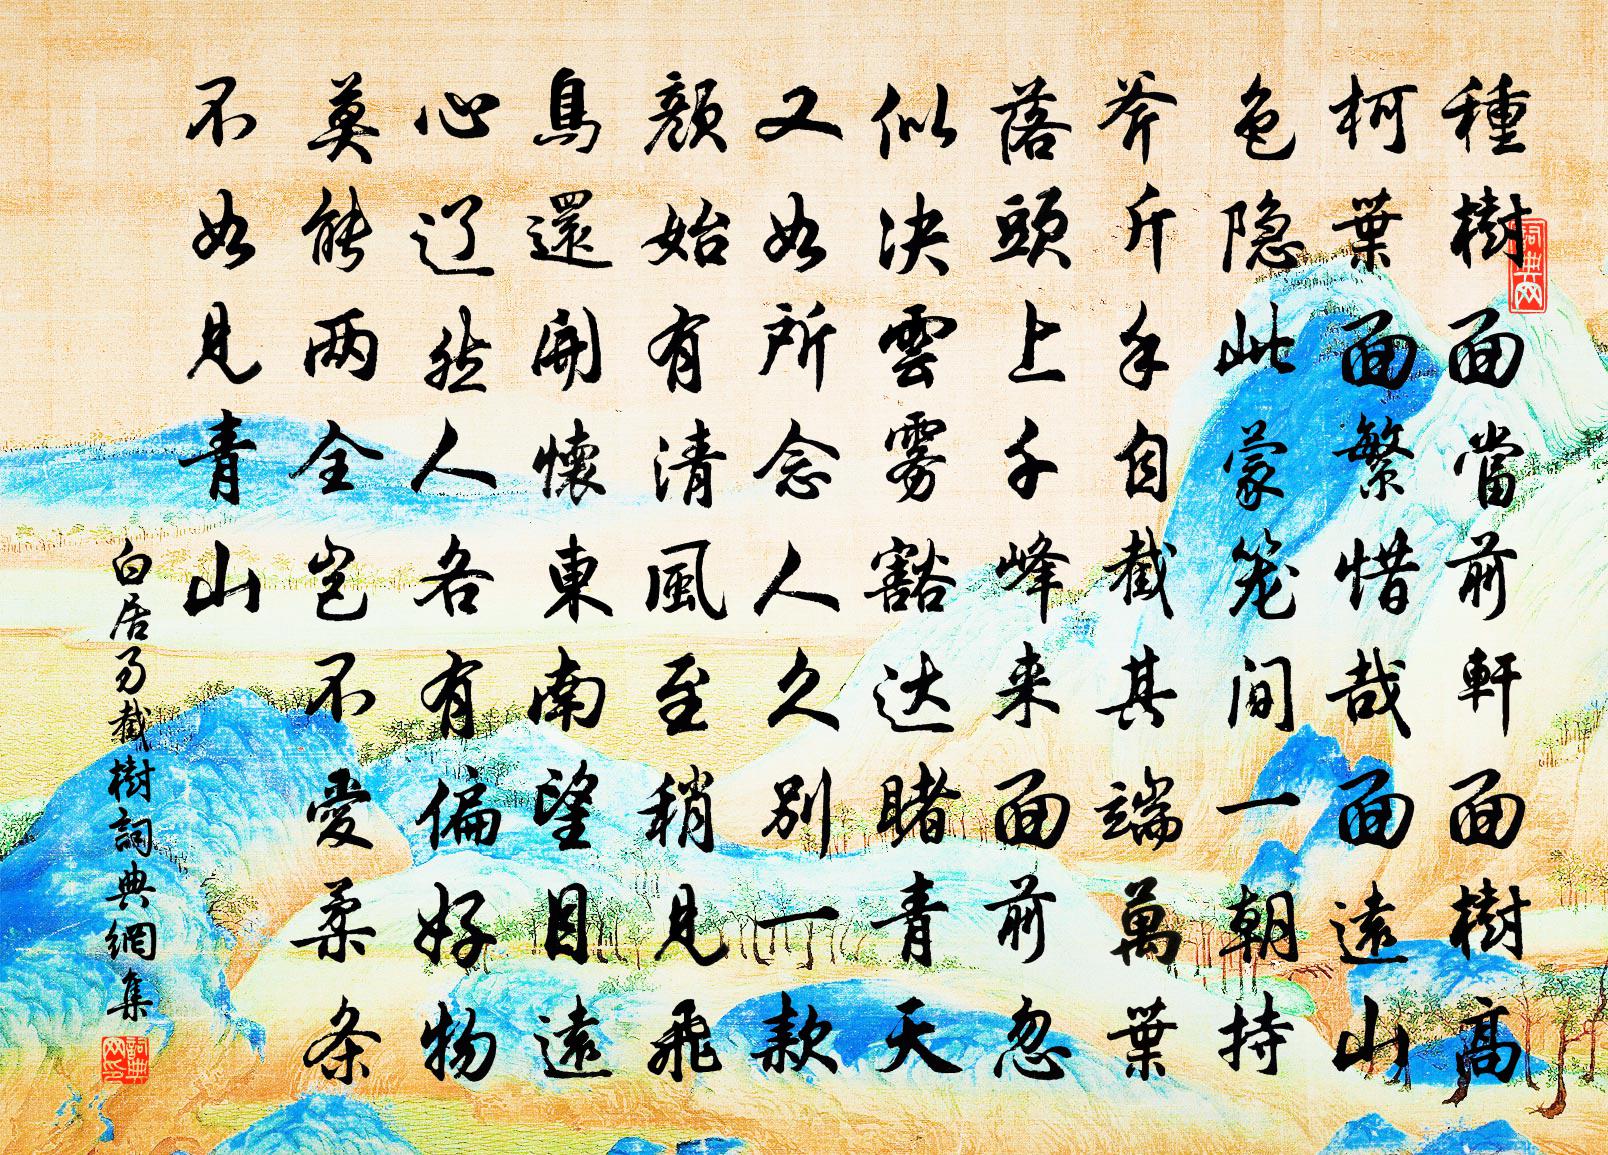 種樹面當前軒面樹高
柯葉面繁惜哉面遠山
色隐此蒙笼间一朝持
斧斤手自截其端萬葉
落頭上千峰来面前忽
似決雲雾豁达睹青天
又如所念人久別一款
顏始有清風至稍見飛
鳥還開懷東南望目遠
心辽然人各有偏好物
莫能两全岂不愛柔条
不如見青山
白居易截樹詞典網集
詞典网
詞典网印